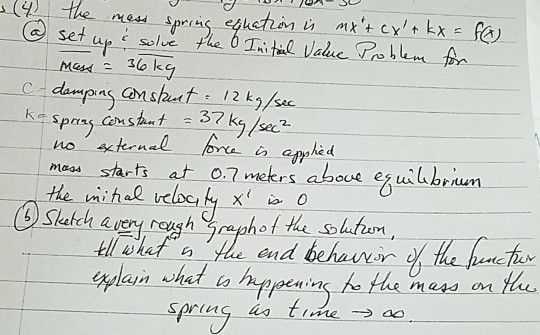 s (4) the mass spring equation is mx" + cx' + kx = f(x)
(a) set up & solve the Initial Value Problem for
mass = 36 kg
C - damping constant = 12 kg/sec
K = spring constant = 37 kg/sec²
no external force is applied
mass starts at 0.7 meters above equilibrium
the initial velocity x' is 0
(b) Sketch a very rough graph of the solution,
tell what is the end behavior of the function
explain what is happening to the mass on the
spring as time → ∞.